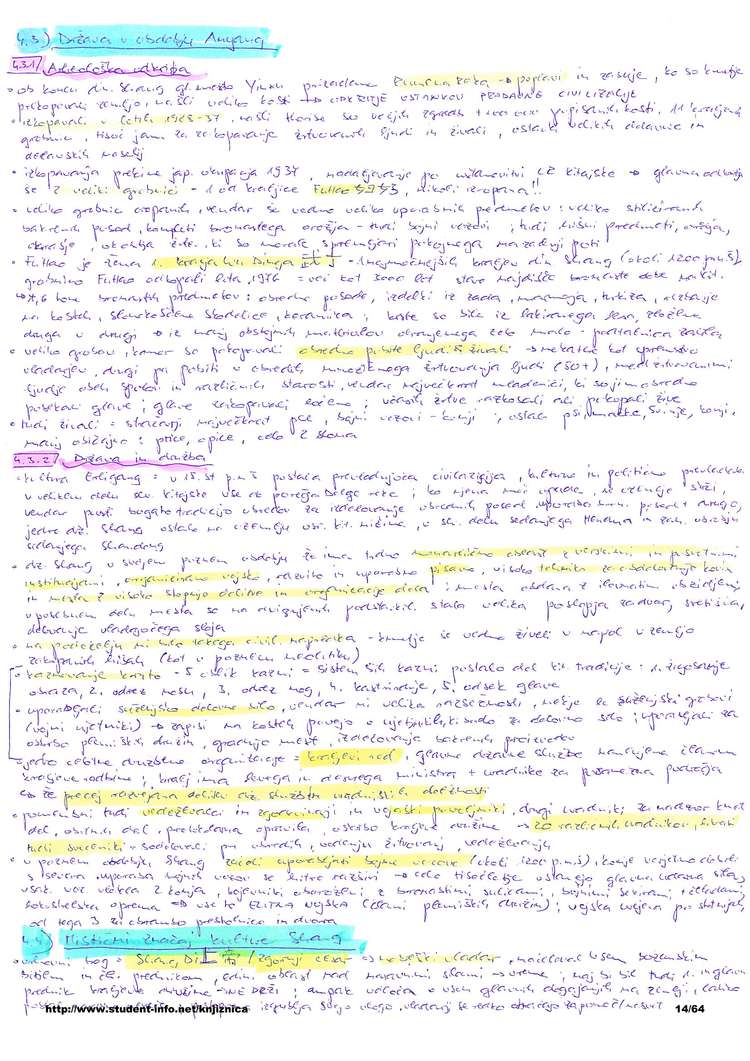 4.3.) Država v obdobju Anyang
4.3.1) Arheološka odkritja
• ob koncu din. Shang gl. mesto Yinxu prizadene Rumena reka → poplavi in zasuje, ko so kmetje
prekopavali zemljo, našli veliko kosti → ODKRITJE OSTANKOV PRADAVNE CIVILIZACIJE
• izkopavali v letih 1928-37, našli tlorise 50 večjih zgradb + 100 000 popisanih kosti, 11 kraljevih
grobnic, tisoč jam za zakopavanje žrtvovanih ljudi in živali, ostanki velikih delavnic in
delavskih naselij
• izkopavanja prekine jap. okupacija 1937, nadaljevanje po ustanovitvi LR Kitajske → glavna odkritja
še 2 veliki grobnici - 1 od kraljice Fuhao, nikoli izropana!!
• veliko grobnic izropanih, vendar še vedno veliko uporabnih predmetov: veliko stiliziranih
bakrenih posod, kompleti bronastega orožja - tudi bojni vozovi; tudi hišni predmeti, orožja,
okrasje, okolja žrtev, ki so morale spremljati pokojnega na zadnji poti
• Fuhao je žena 1. kralja Wu Dinga - najmočnejših kraljev din. Shang (okoli 1200 p.n.š.),
grobnico Fuhao odkopali leta 1976 = več kot 3000 let stare najdišče bronaste dobe na kit.
bronastih predmetov: obredne posode, izdelki iz žada, marmorja, turkiza, rezbarije
na kosteh, slonokoščene skodelice, keramika; krste so bile iz lakiranega lesa, zložene
druga v drugi → iz manj obstojnih materialov ohranjenega zelo malo - podtalnica zalila
• veliko grobov, kamor so pokopavali obredno pobite ljudi in živali → nekateri kot spremstvo
vladarjev, drugi pri pobiti v obredih množičnega žrtvovanja ljudi (50+), med žrtvovanimi
ljudje obeh spolov in različnih starosti, vendar največkrat mladeniči, ki so jim obredno
posekali glave; glave zakopavali ločeno; včasih žrtve razkosali ali pokopali žive
• tudi živali = stražarji največkrat psi, bojni vozovi - konji; ostali psi, svinje, konji,
manj običajno: ptice, opice, celo 2 slona
4.3.2) Država in družba
• kultura Erligang = v 15. st. p.n.š. postala prevladujoča civilizacija, kulturno in politično prevladala
v velikem delu sev. Kitajske vse do porečja Dolge reke; ko njena moč upade, se ozemlje skrči,
vendar pusti bogato tradicijo obredov
jedro drž. Shang ostalo na ozemlju osr. kit. nižine, v sev. delu sedanjega Henana in zah. obrobju
sedanjega Shandong
• drž. Shang v svojem poznem obdobju že ima trdno monarhično oblast z verskimi in posvetnimi
institucijami, organizirano vojsko, razvito in uporabno pisavo, visoko tehniko za obdelovanje kovin
in mesta z visoko stopnjo delitve in organizacije dela; mesta obdana z ilovnatim obzidjem,
v posebnem delu mesta so na dvignjenih podstavkih stala velika poslopja za dvor, svetišča,
delovanje vladajočega sloja
• na podeželju ni bilo takega civil. napredka - kmetje še vedno živeli v napol v zemljo
zakopanih hišah (kot v poznem neolitiku)
• kaznovanje kruto - 5 oblik kazni = sistem 5ih kazni postalo del kit. tradicije: 1. žigosanje
obraza, 2. odrez nosu, 3. odrez nog, 4. kastriranje, 5. odsek glave
• uporabljali suženjsko delovno silo, vendar ni velika razsežnosti, manjše so suženjski grobovi
(vojni ujetniki) → zapisi na kosteh povejo o ujetnikih, ki so do za delovno silo; uporabljali za
oskrbo plemiških družin, gradnjo mest, izdelovanja bakrenih proizvodov
• jedro celotne družbene organizacije = kraljevi rod, glavne državne službe namenjene članom
kraljeve rodbine; kralj ima levega in desnega ministra + uradnike za posamezna področja
↪ že precej razvejana delitev drž. služb in uradniških dolžnosti
• pomembni tudi vedeževalci in zgodovinarji in vojaški poveljniki, drugi uradniki za nadzor kmet.
del, obrtnih del, prerokovanja opravila, oskrbo kraljeve družine → 20 različnih uradnikov,
tudi svečeniki = sodelovali pri obredih, vodenju žrtvovanj, vedeževanja
• v poznem obdobju Shang začeli uporabljati bojne vozove (okoli 1200 p.n.š.), konje verjetno dobili
s severa, uporaba bojnih vozov se hitro razširi → celo tisočletje ostanejo glavna udarna sila,
vsak voz vlekla 2 konja, bojevniki oboroženi z bronastimi sulicami, bojnimi sekirami + čeladami,
→ vse to ELITNA VOJSKA (člani plemiških družin); vojska vojna po
od tega 3 za obrambo prestolnice in dvora
4.4.) Mistični značaj kulture Shang
• vrhovni bog = Shang Di 上帝 / zgornji cesar → nebeški vladar, načeloval vsem božanskim
bitjem in čl. prednikom, edini oblast nad naravnimi silami → vreme; naj bi bil tudi 1. in glavni
prednik kraljeve družine → NE DRŽI; ampak odloča o vseh glavnih dogajanjih na zemlji, lahko
izgublja svojo vlogo, vladarji se redko obračajo za pomoč/nasvet
http://www.student-info.net/knjiznica
14/64